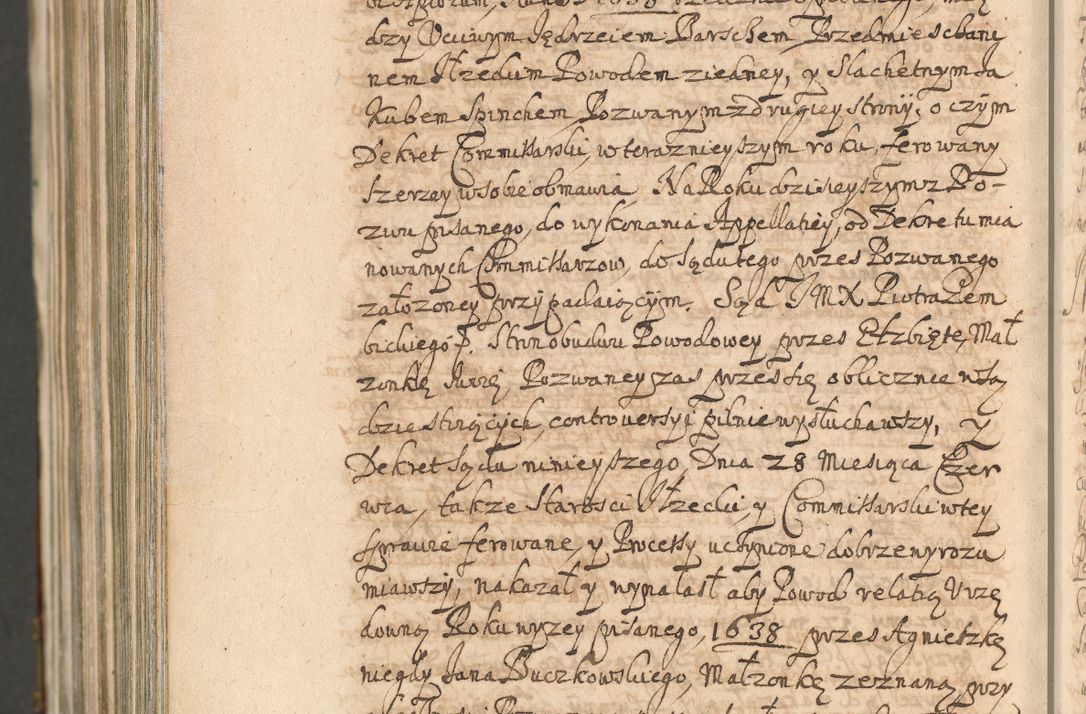 dzy Ucciwym Jędrzeiem Barschem Przedmieschani
nem Jłzeckim Powodem ziedney, y Slachetnym Ja
Kubem Spinchem, Pozwanym z drugiey strony, o czym
Dekret Commissarski, w teraznieyszym roku, ferowany
szerzey w sobie obmawia. Na Roku dzisieyszym z Po-
zwu pisanego, do wykonania Appellatiey, od Dekretu mia
nowanych Commissarzow, do Sądu tego przes Pozwanego
założoney przypadaiącym. Sąd JMX Piotra Gem
bickiego p. Stron obudwu Powodowey przes Elzbiętę, Mał
zonkę swoię, Pozwaney zas przes się oblicznie w są
dzie stoiących, controversyi pilnie wysłuchawszy, y
Dekret Sądu ninieyszego, Dnia 28 Miesiąca Czer
wca, takze Starosci Jłzecki, y Commissarski w tey
sprawie ferowane, y Processy uczynione dobrze wyrozu
miawszy, nakazał y wynalasł aby Powod relatią Urzę
downą Roku wyzey pisanego, 1638 przes Agnieszkę
niegdy Jana Buczkowskiego, Małzonkę zeznaną, przy